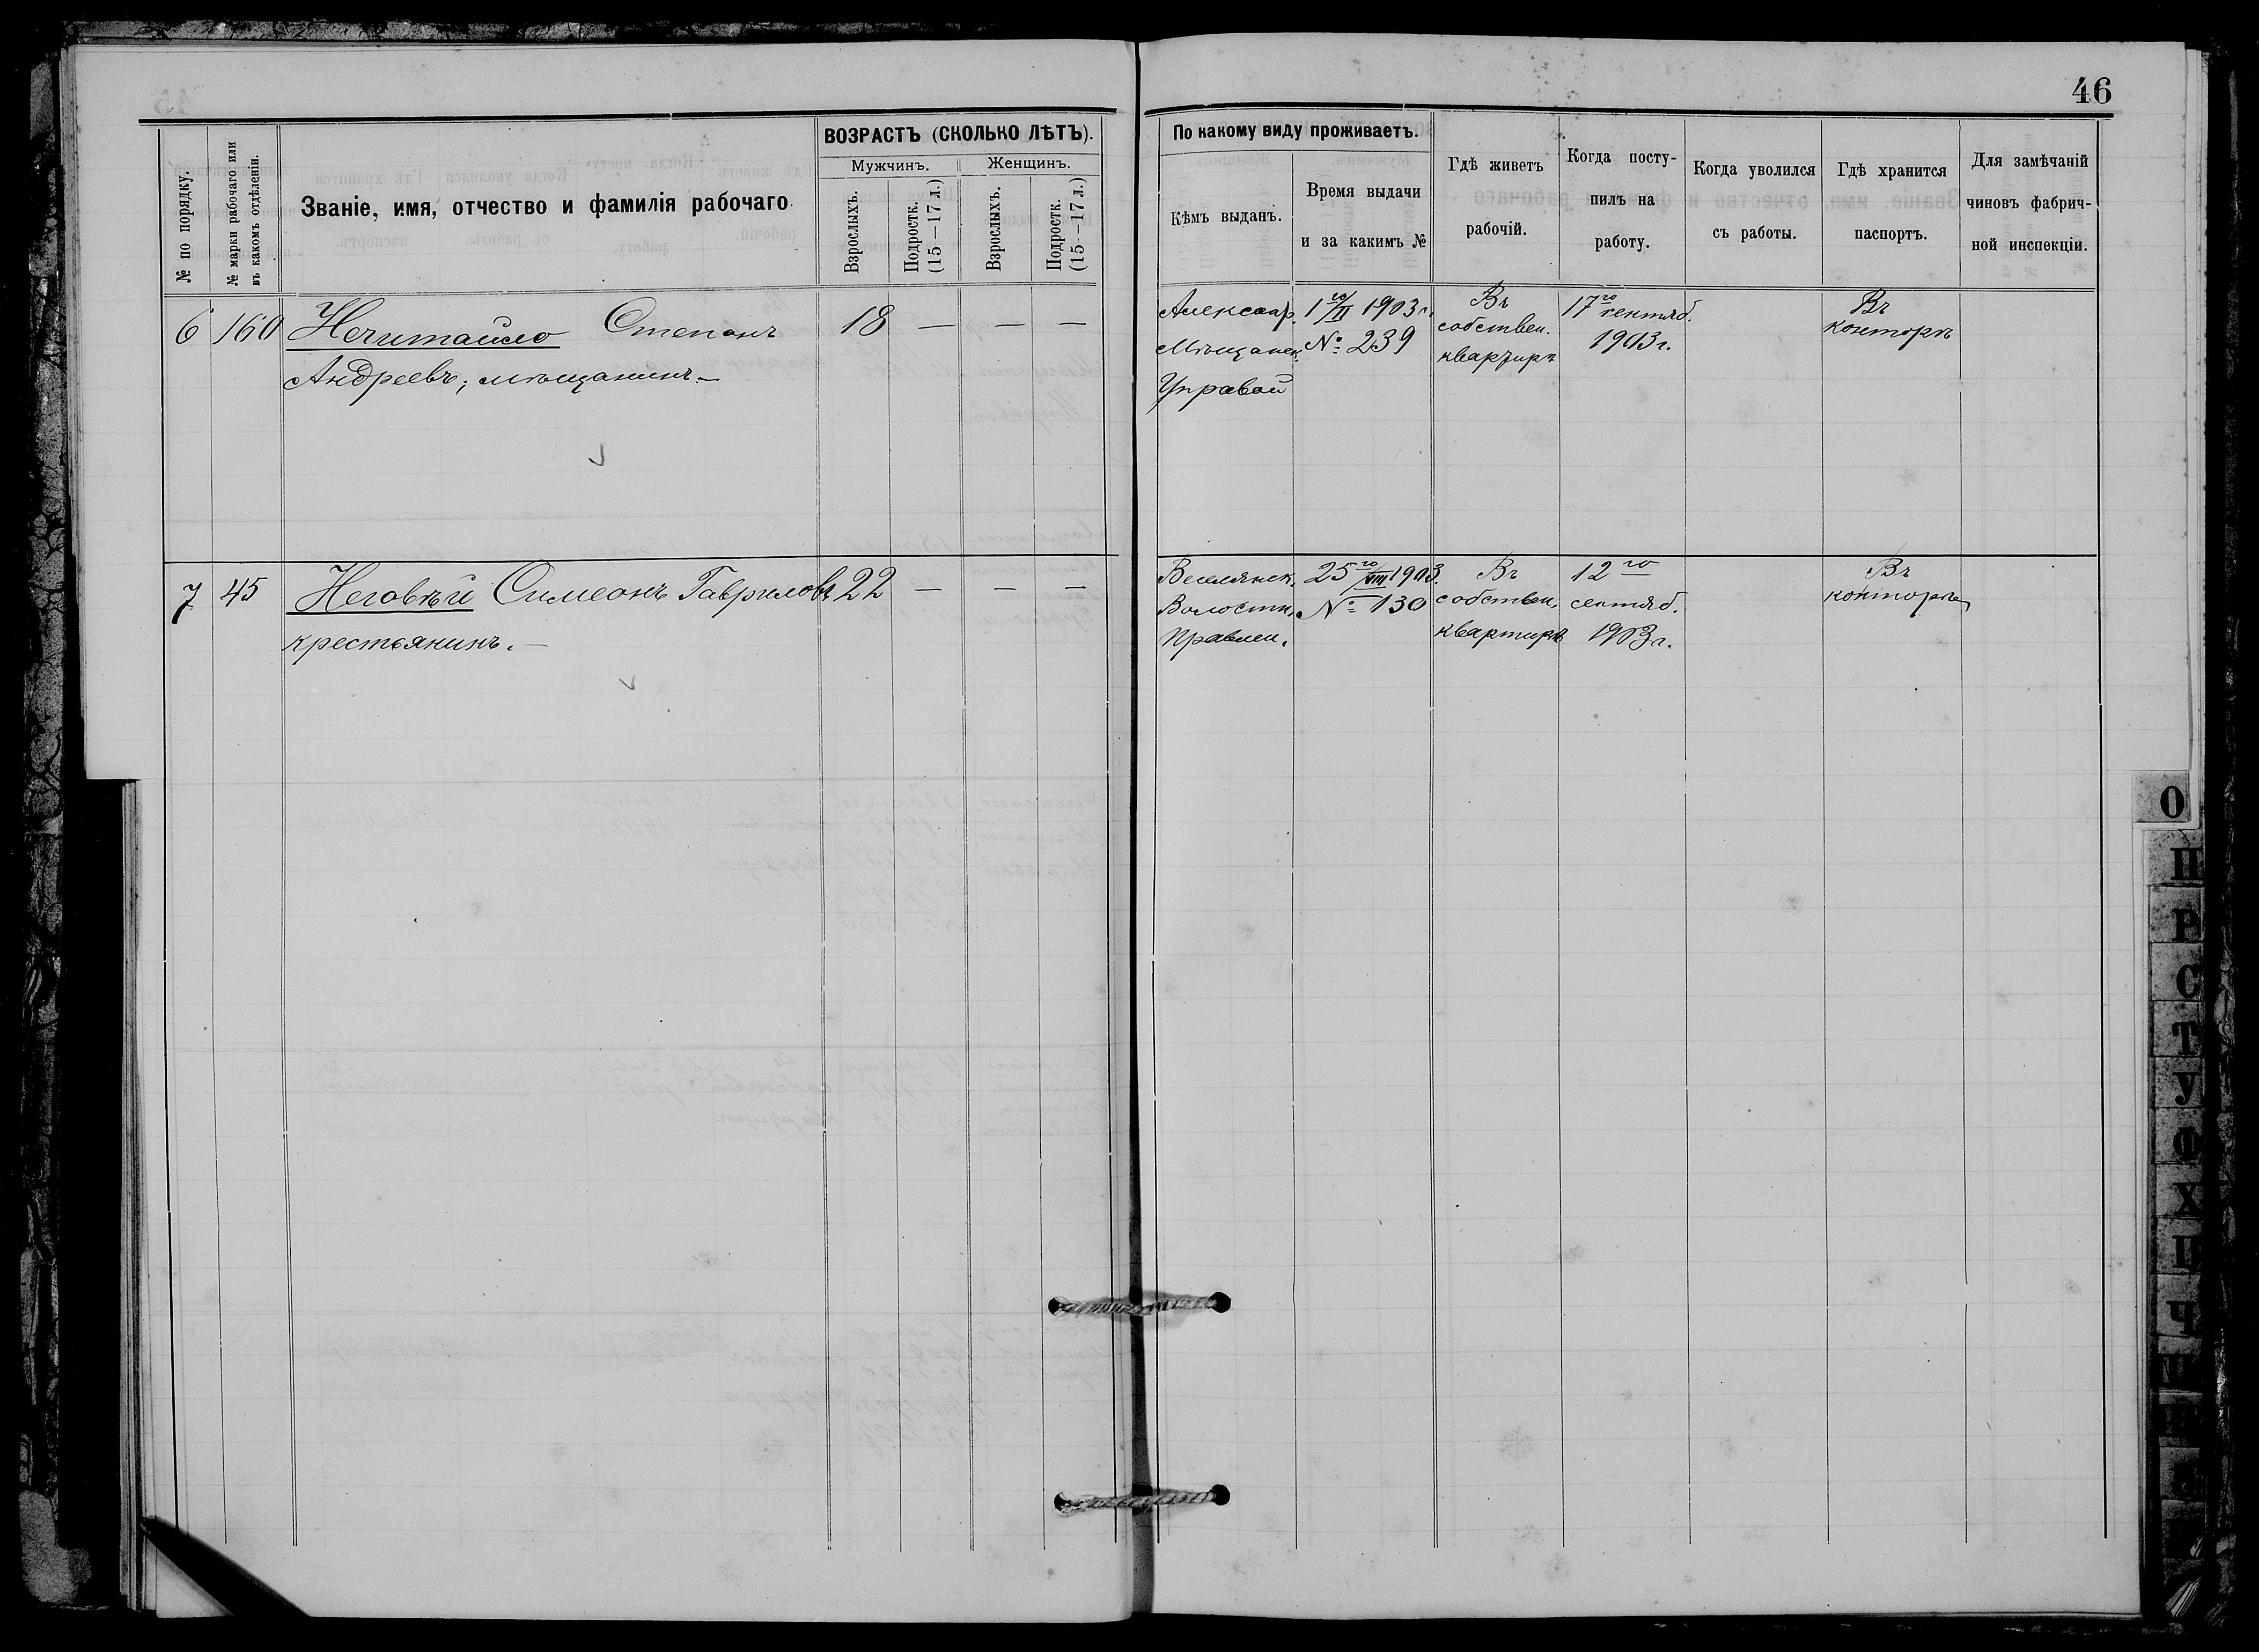 46
№ по порядку.
№ марки рабочаго или
въ какомъ отдѣленіи.
Званіе, имя, отчество и фамилія рабочаго.
ВОЗРАСТЪ (СКОЛЬКО ЛѢТЪ).
Мужчинъ.
Женщинъ.
Взрослыхъ.
Подростк.
(15—17 л.)
Взрослыхъ.
Подростк.
(15—17 л.)
По какому виду проживаетъ.
Кѣмъ выданъ.
Время выдачи
и за какимъ №
Гдѣ живетъ
рабочій.
Когда посту-
пилъ на
работу.
Когда уволился
съ работы.
Гдѣ хранится
паспортъ.
Для замѣчаній
чиновъ фабрич-
ной инспекціи.
6 160 Нечитайло Степанъ 18 — — —
Андреевъ, мѣщанинъ.—
Александр.
Мѣщанск.
Управой
1го/II 1903 г.
№ 239
Въ
собствен.
квартирѣ
17го сентяб.
1903 г.
Въ
конторѣ
7 45 Неговѣй Симеонъ Гавриловъ 22 — — —
крестьянинъ.—
Веселянск.
Волостн.
Правлен.
25го/VIII 1903.
№ 130
Въ
собствен.
квартирѣ
12го
сентяб.
1903 г.
Въ
конторѣ
О
П
Р
С
Т
У
Ф
Х
Ц
Ч